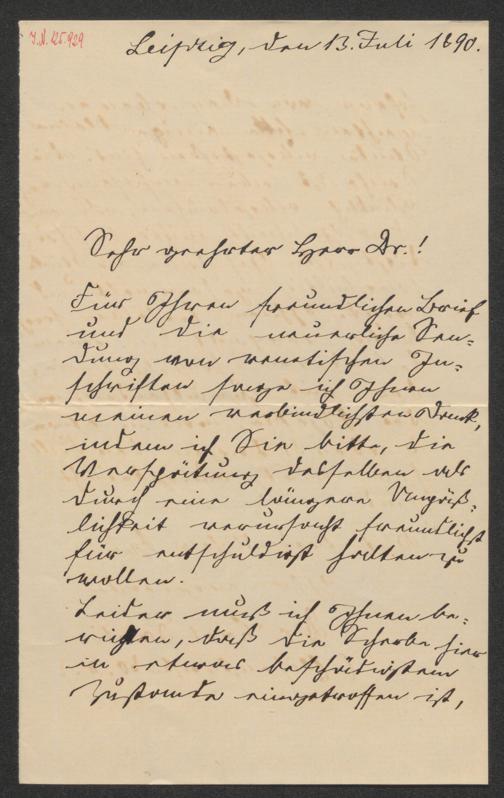 J.N. 125.929
Leipzig, den 13. Juli 1890.
Sehr geehrter Herr Dr.!
Für Ihren freundlichen Brief
und die neuerliche Sen-
dung von venetischen In-
schriften sage ich Ihnen
meinen verbindlichsten Dank,
indem ich Sie bitte, die
Verspätung desselben als
durch eine längere Unpäß-
lichkeit verursacht freundlichst
für entschuldigt halten zu
wollen.
Leider muß ich Ihnen be-
richten, daß die Scherbe hier
in etwas beschädigtem
Zustande eingetroffen ist,